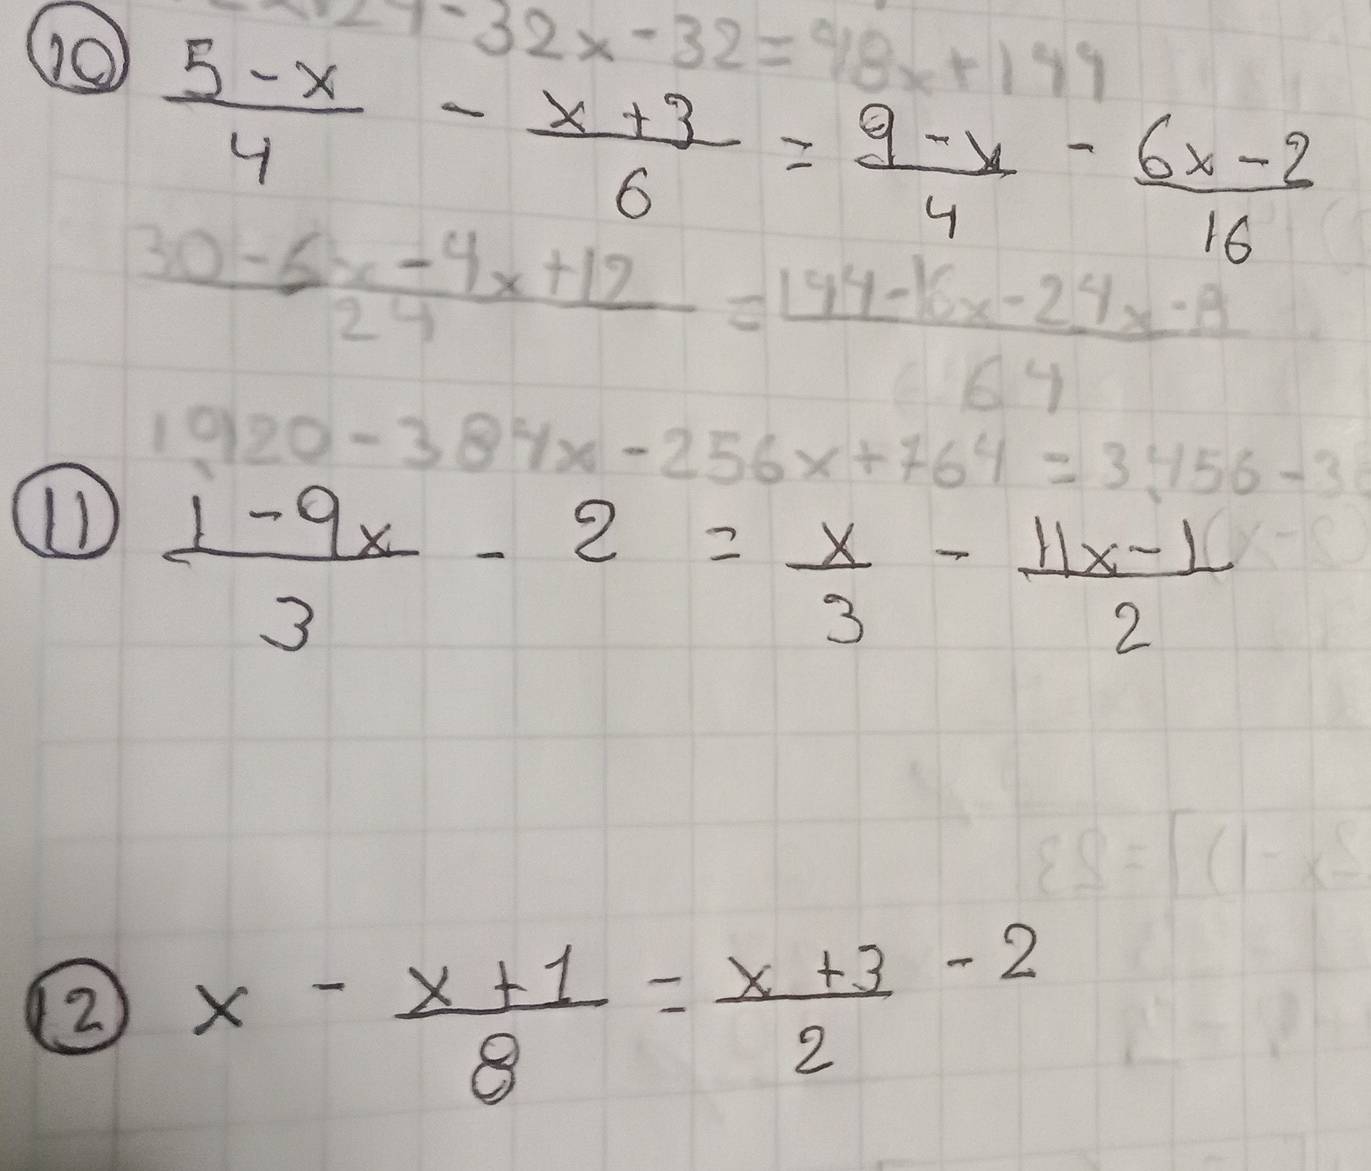 - 32x - 32 = 48x + 144
⑩ 5 - x / 4 - x + 3 / 6 = 9 - x / 4 - 6x - 2 / 16
30 - 6x - 4x + 12 / 24 = 144 - 16x - 24x - 8 / 64
1,920 - 384x - 256x + 764 = 3,456 - 3
⑪ 1 - 9x / 3 - 2 = x / 3 - 11x - 1 / 2
⑫ x - x + 1 / 8 = x + 3 / 2 - 2